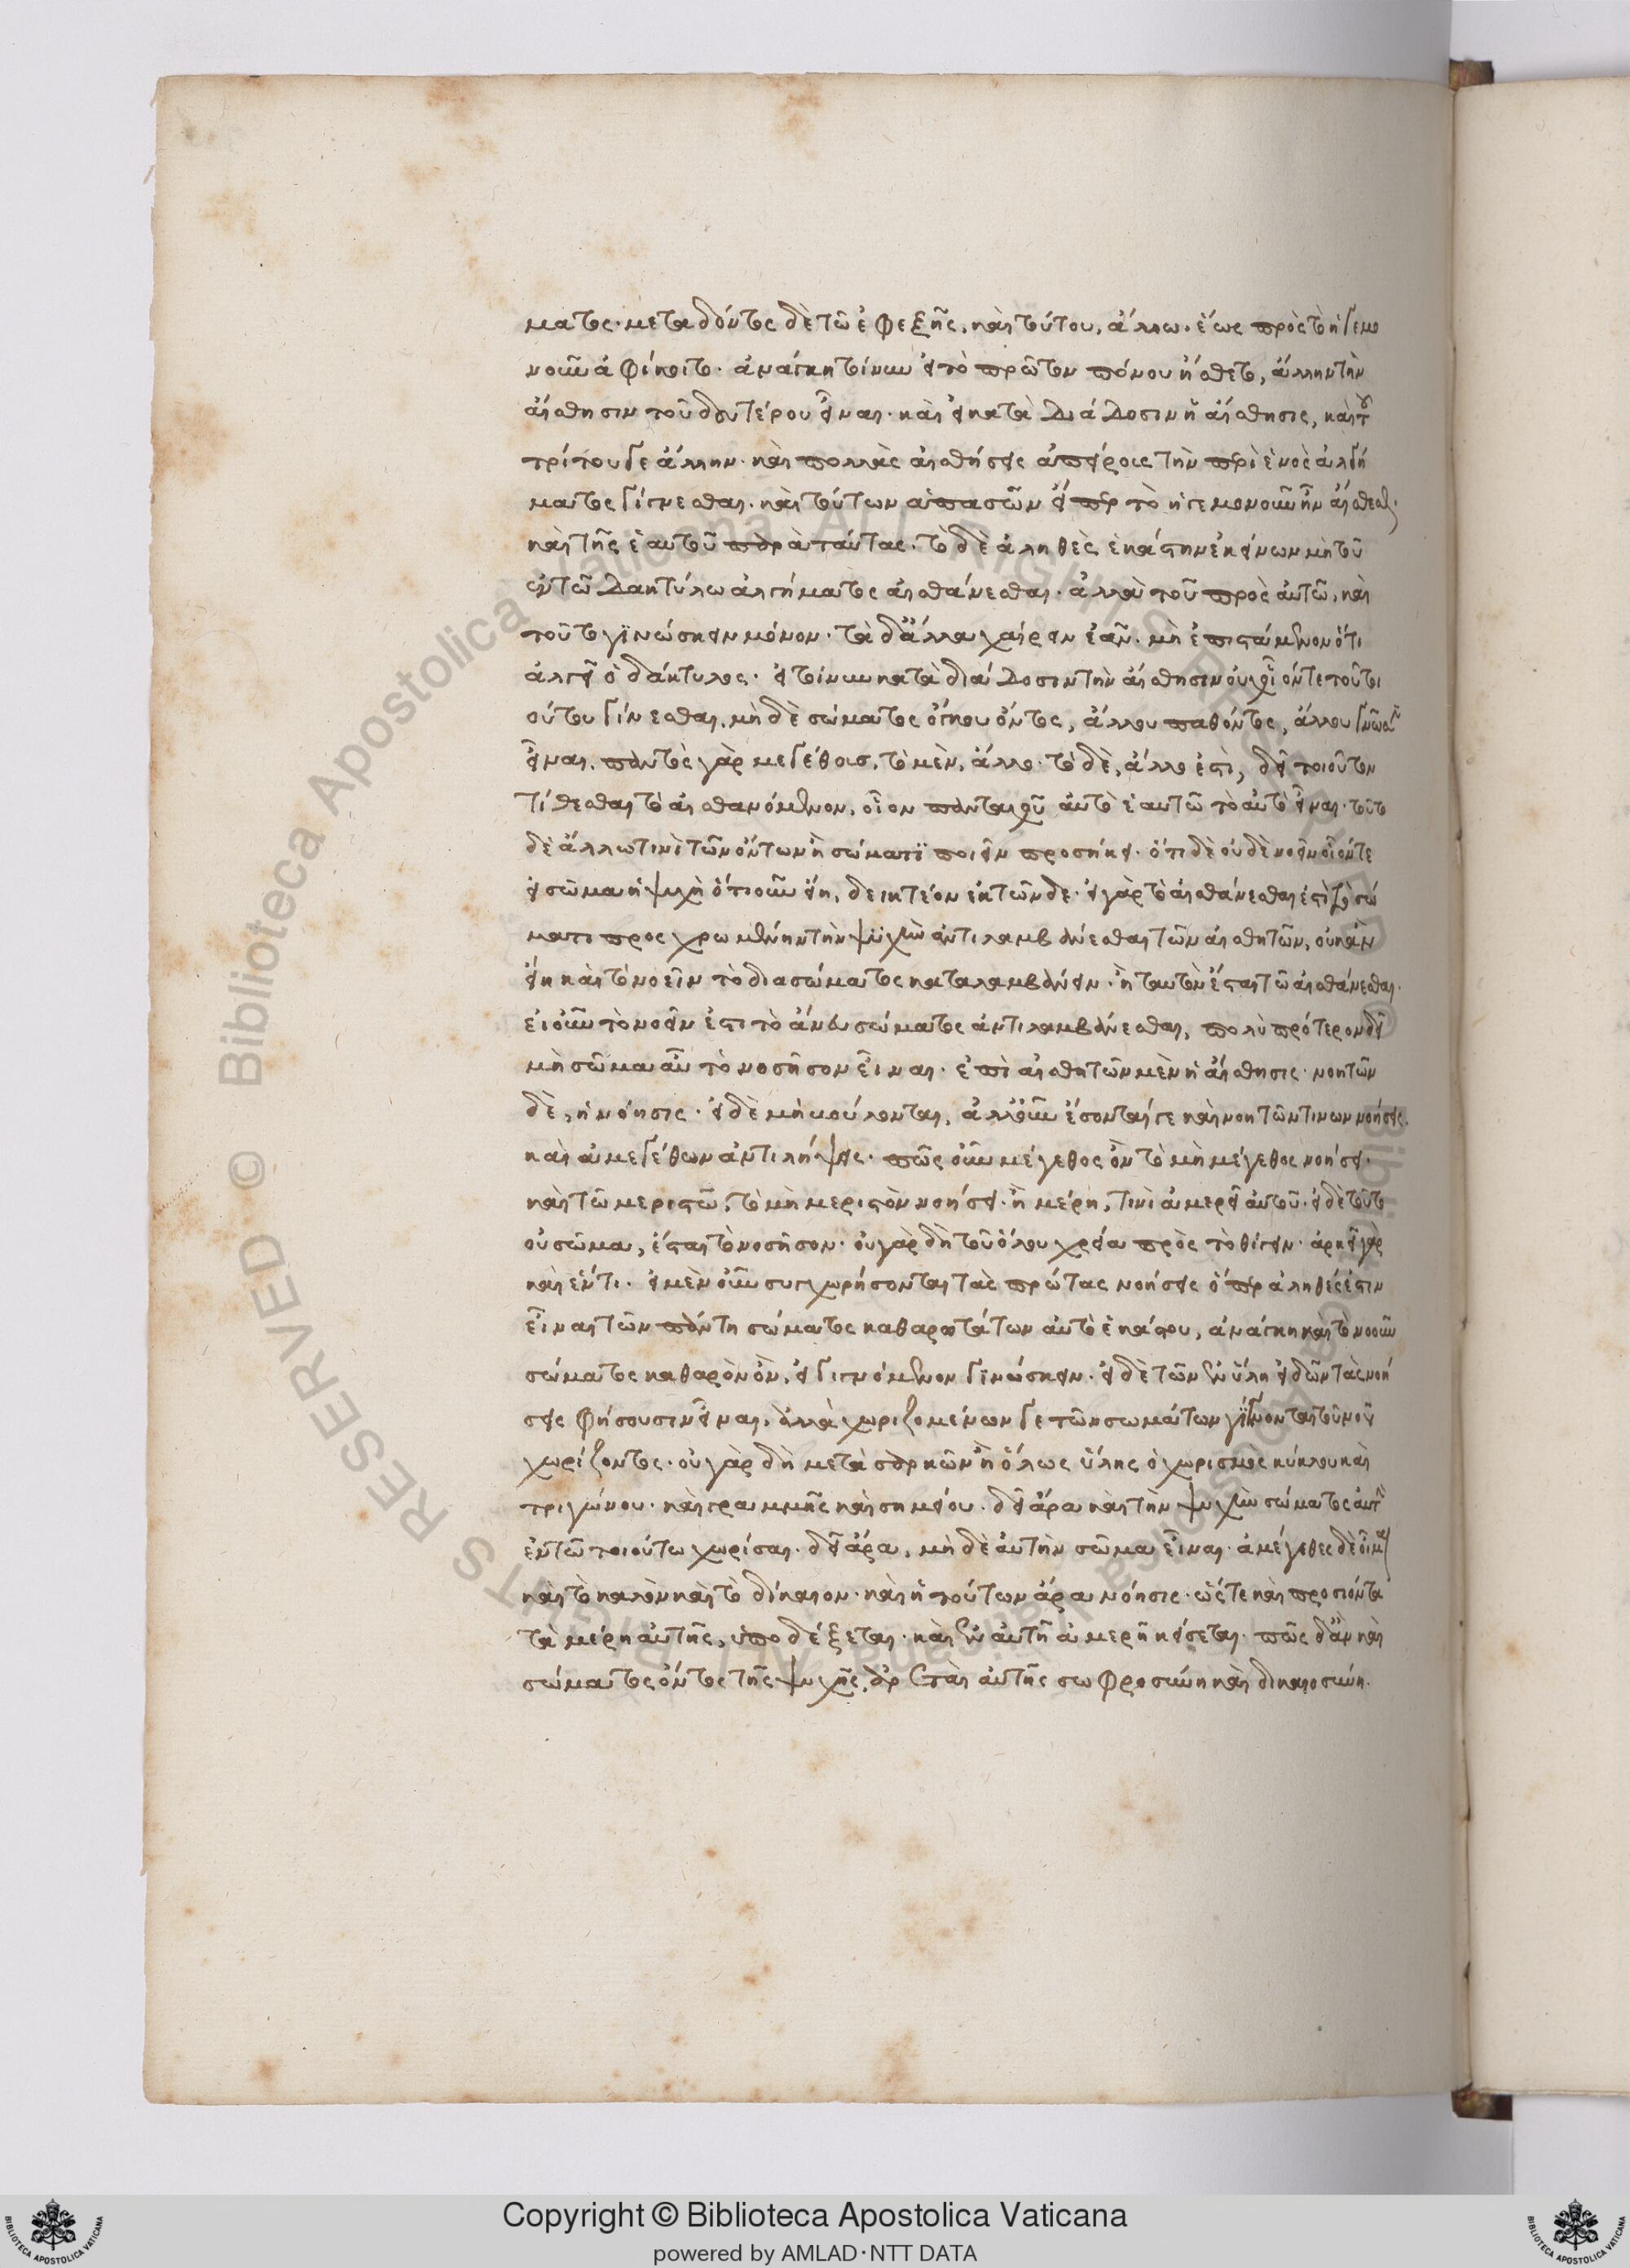 ματος· μεταδόντος δὲ τῶ ἐφεξῆς, καὶ τούτου, ἄλλω. ἕως πρὸς τὸ ἡγεμο
νοῦν ἀφίκοιτο· ἀνάγκη τοίνυν εἰ τὸ πρῶτον πόνου ἤσθετο, ἄλλην τὴν
αἴσθησιν τοῦ δευτέρου εἶναι· καὶ εἰ κατὰ διάδοσιν ἡ αἴσθησις, καὶ τοῦ
τρίτου δε ἄλλην· καὶ πολλὰς αἰσθήσεις ἀπείρους τὴν περὶ ἑνὸς ἀλγή
ματος γίγνεσθαι. καὶ τούτων ἁπασῶν εἴπερ τὸ ἡγεμονοῦν ἦν αἴσθεσθαι·
καὶ τῆς ἑαυτοῦ παρὰ ταύτας· τὸ δὲ ἀληθὲς ἑκάστην ἐκείνων μὴ τοῦ
ἐν τῶ δακτύλω ἀλγήματος αἰσθάνεσθαι. ἀλλὰ τοῦ πρὸς αὐτῶ, καὶ
τοῦτο γϊνώσκειν μόνον· τὰ δ' ἄλλα χαίρειν ἐᾶν. μὴ ἐπισταμένην ὅτι
ἀλγεῖ ὁ δάκτυλος· εἰ τοίνυν κατὰ διάδοσιν τὴν αἴσθησιν οὐχ οἷόν τε τοῦ τοι
ούτου γίνεσθαι, μὴ δὲ σώματος ὄγκου ὄντος, ἄλλου παθόντος, ἄλλου γνῶσιν
εἶναι. παντὸς γὰρ μεγέθους, τὸ μὲν, ἄλλο· τὸ δὲ, ἄλλο ἐστὶ, δεῖ τοιοῦτον
τίθεσθαι τὸ αἰσθανόμενον, οἷον πανταχοῦ αὐτὸ ἑαυτῶ τὸ αὐτὸ εἶναι· τοῦτο
δὲ ἄλλω τινὶ τῶν ὄντων ἢ σώματϊ ποιεῖν προσήκει· ὅτι δὲ οὐδὲ νοεῖν οἷόν τε
εἰ σῶμα ἡ ψυχὴ ὁτιοῦν εἴη, δεικτέον ἐκ τῶνδε· εἰ γὰρ τὸ αἰσθάνεσθαι ἐστὶ τὸ σώ
ματι προσχρωμένην τὴν ψϋχὴν ἀντιλαμβάνεσθαι τῶν αἰσθητῶν, οὐκ ἂν
εἴη καὶ τὸ νοεῖν τὸ διὰ σώματος καταλαμβάνειν· ἢ ταυτὸν ἔσται τῶ αἰσθάνεσθαι.
εἰ οὖν τὸ νοεῖν ἐστι τὸ ἄνευ σώματος ἀντιλαμβάνεσθαι, πολὺ πρότερον δεῖ
μὴ σῶμα αὐτὸ τὸ νοῆσον εἶναι· ἐπὶ αἰσθητῶν μὲν ἡ αἴσθησις· νοητῶν
δὲ, ἡ νόησις· εἰ δὲ μὴ βούλονται, ἀλλ' οὖν ἔσονταί γε καὶ νοητῶν τινων νοήσεις.
καὶ ἀμεγέθων ἀντιλήψεις· πῶς οὖν μέγεθος ὂν τὸ μὴ μέγεθος νοήσει·
καὶ τῶ μεριστῶ, τὸ μὴ μεριστὸν νοήσει· ἢ μέρη, τινὶ ἀμερεῖ αὐτοῦ· εἰ δὲ τοῦτο
οὐ σῶμα, ἔσται τὸ νοῆσον· οὐ γὰρ δὴ τοῦ ὅλου χρεία πρὸς τὸ θίγειν· ἀρκεῖ γὰρ
καὶ ἕν τι· εἰ μὲν οὖν συγχωρήσονται τὰς πρώτας νοήσεις ὅπερ ἀληθές ἐστιν
εἶναι τῶν πάντη σώματος καθαρωτάτων αὐτὸ ἑκάστου, ἀνάγκη καὶ τὸ νοοῦν
σώματος καθαρὸν ὂν, ἢ γιγνόμενον γϊνώσκειν· εἰ δὲ τῶν ἐν ὕλη εἰδῶν τὰς νοή
σεις φήσουσιν εἶναι, ἀλλὰ χωριζομένων γε τῶν σωμάτων γϊγνονται τοῦ νοῦ
χωρίζοντος· οὐ γὰρ δὴ μετὰ σαρκῶν ἢ ὅλως ὕλης ὁ χωρισμὸς κύκλου καὶ
τριγώνου· καὶ γραμμῆς καὶ σημείου· δεῖ ἄρα καὶ τὴν ψυχὴν σώματος αὑτὴν
ἐν τῶ τοιούτω χωρίσαι· δεῖ ἄρα, μὴ δὲ αὐτὴν σῶμα εἶναι· ἀμέγεθες δὲ οἶμαι
καὶ τὸ καλὸν καὶ τὸ δίκαιον· καὶ ἡ τούτων ἄρα νόησις· ὥστε καὶ προσιόντα
τὰ μέρη αὐτῆς, ὑποδέξεται· καὶ ἐν αὐτῆ ἀμερῆ κείσεται· πῶς δ' ἂν καὶ
σώματος ὄντος τῆς ψυχῆς, ἀρεταὶ αὐτῆς σωφροσύνη καὶ δικαιοσύνη.
Copyright © Biblioteca Apostolica Vaticana
powered by AMLAD·NTT DATA